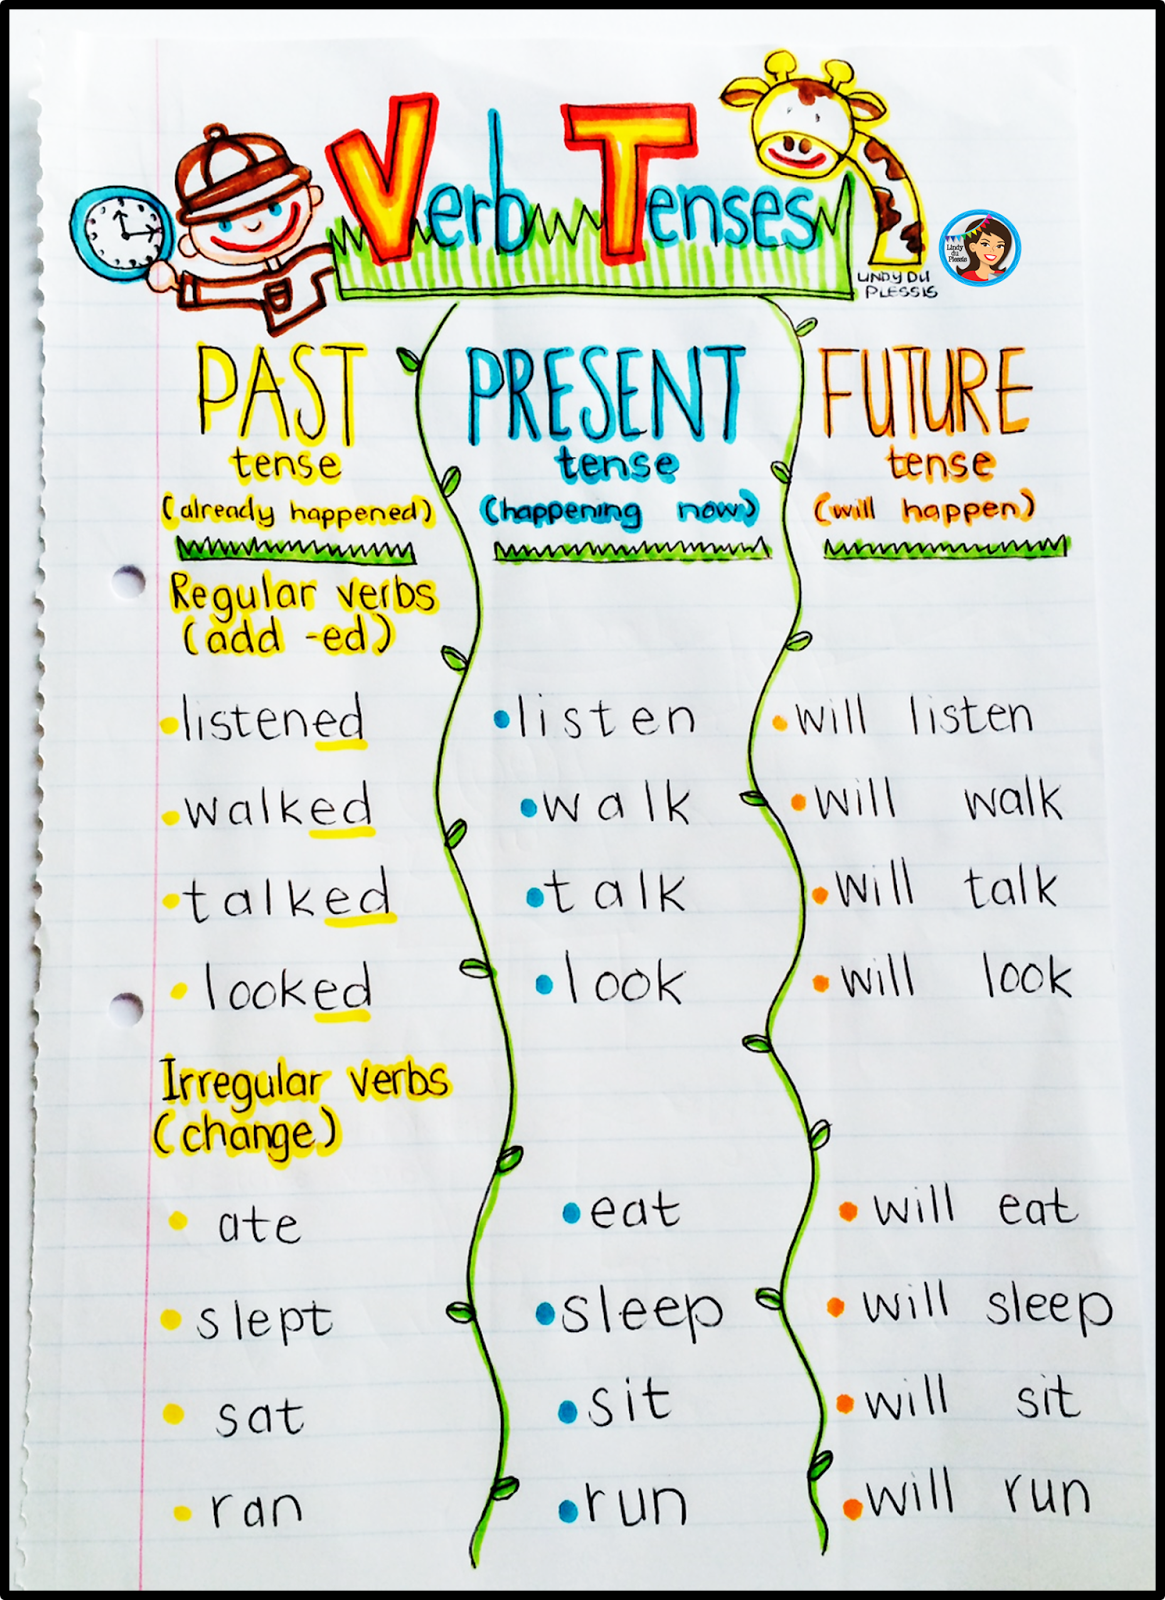 Verb Tenses
LINDY DU
PLESSIS
Lindy
du
Plessis
PAST
tense
(already happened)
PRESENT
tense
(happening now)
FUTURE
tense
(will happen)
Regular verbs
(add -ed)
•listened •listen •will listen
•walked •walk •will walk
•talked •talk •will talk
•looked •look •will look
Irregular verbs
(change)
•ate •eat •will eat
•slept •sleep •will sleep
•sat •sit •will sit
•ran •run •will run